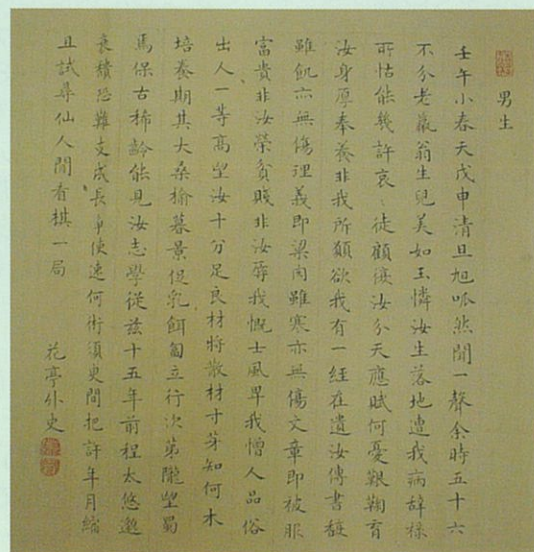 男生
壬午小春天戊申清旦旭呱然聞一聲余時五十六
不分老羸翁生兒美如玉憐汝生落地遭我病辭祿
所怙能幾許哀〻徒顧復汝分天應賦何憂艱鞠育
汝身厚奉養非我所願欲我有一經在遺汝傳書馥
雖飢亦無傷理義即粱肉雖寒亦無傷文章即被服
富貴非汝榮貧賤非汝辱我慨士風卑我憎人品俗
出人一等高望汝十分足良材將散材寸芽知何木
培養期其大桑榆暮景促乳餌匐立行次第隴望蜀
焉保古稀齡能見汝志學從茲十五年前程太悠邈
衰積恐難支成長爭使速何術須臾間把許年月縮
且試尋仙人閒看棋一局
花亭外史